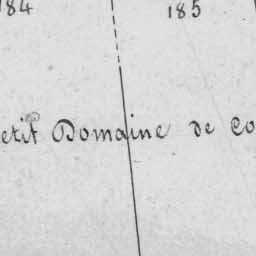 184 185
etit Domaine de Co